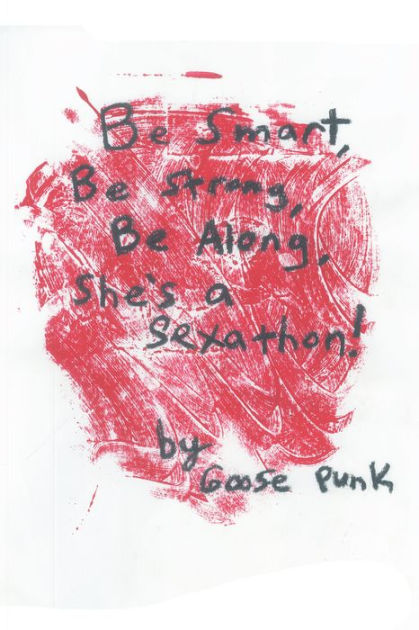 Be Smart,
Be Strong,
Be Along,
She's a
Sexathon!
by
Goose Punk